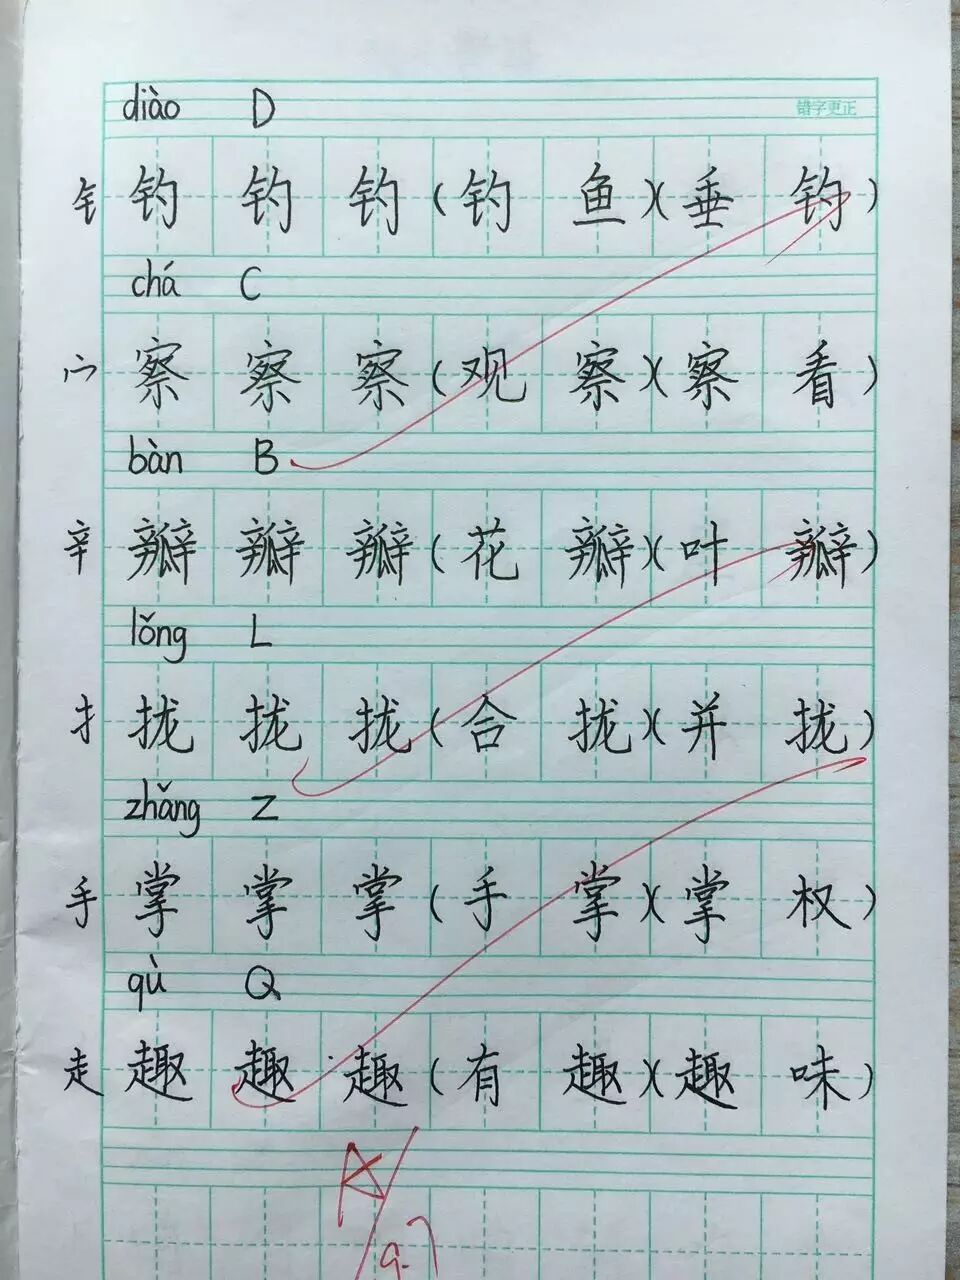 diào D 错字更正
钅 钓 钓 钓 (钓 鱼)(垂 钓)
chá C
宀 察 察 察 (观 察)(察 看)
bàn B
辛 瓣 瓣 瓣 (花 瓣)(叶 瓣)
lǒng L
扌 拢 拢 拢 (合 拢)(并 拢)
zhǎng Z
手 掌 掌 掌 (手 掌)(掌 权)
qù Q
走 趣 趣 趣 (有 趣)(趣 味)
A
9.7